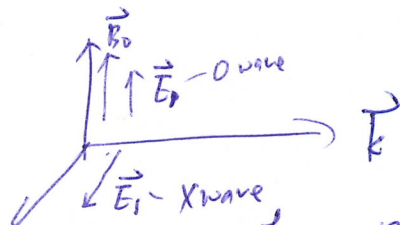 B⃗₀
E⃗₁ - O wave
k⃗
E⃗₁ - X wave